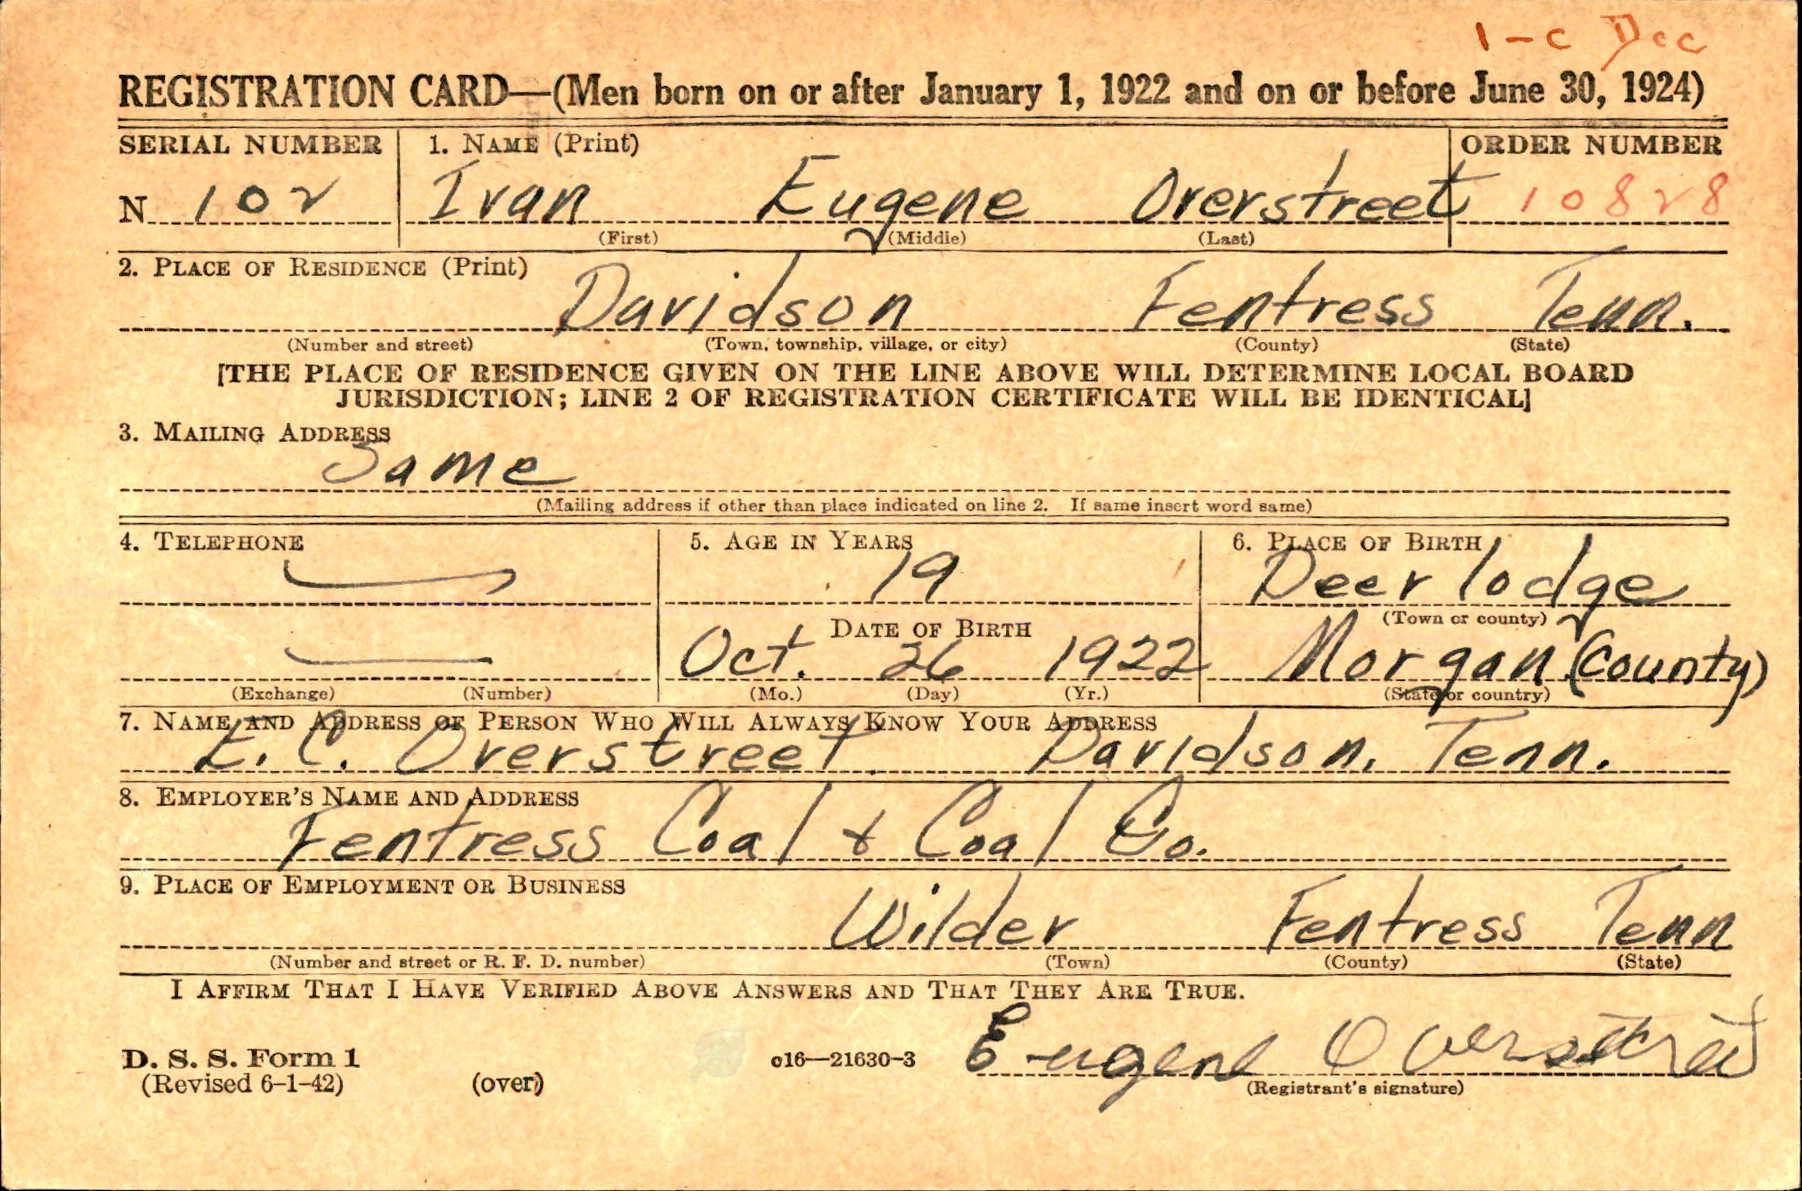 1-C Dec
REGISTRATION CARD—(Men born on or after January 1, 1922 and on or before June 30, 1924)
SERIAL NUMBER 1. NAME (Print) ORDER NUMBER
N 102 Ivan Eugene Overstreet 10828
(First) (Middle) (Last)
2. PLACE OF RESIDENCE (Print)
Davidson Fentress Tenn.
(Number and street) (Town, township, village, or city) (County) (State)
[THE PLACE OF RESIDENCE GIVEN ON THE LINE ABOVE WILL DETERMINE LOCAL BOARD
JURISDICTION; LINE 2 OF REGISTRATION CERTIFICATE WILL BE IDENTICAL]
3. MAILING ADDRESS
Same
(Mailing address if other than place indicated on line 2. If same insert word same)
4. TELEPHONE 5. AGE IN YEARS 6. PLACE OF BIRTH
19 Deer lodge
DATE OF BIRTH (Town or county)
Oct. 26 1922 Morgan (County)
(Exchange) (Number) (Mo.) (Day) (Yr.) (State or country)
7. NAME AND ADDRESS OF PERSON WHO WILL ALWAYS KNOW YOUR ADDRESS
E. C. Overstreet Davidson, Tenn.
8. EMPLOYER'S NAME AND ADDRESS
Fentress Coal & Coal Co.
9. PLACE OF EMPLOYMENT OR BUSINESS
Wilder Fentress Tenn
(Number and street or R. F. D. number) (Town) (County) (State)
I AFFIRM THAT I HAVE VERIFIED ABOVE ANSWERS AND THAT THEY ARE TRUE.
D. S. S. Form 1 c16—21630-3 Eugene Overstreet
(Revised 6-1-42) (over) (Registrant's signature)